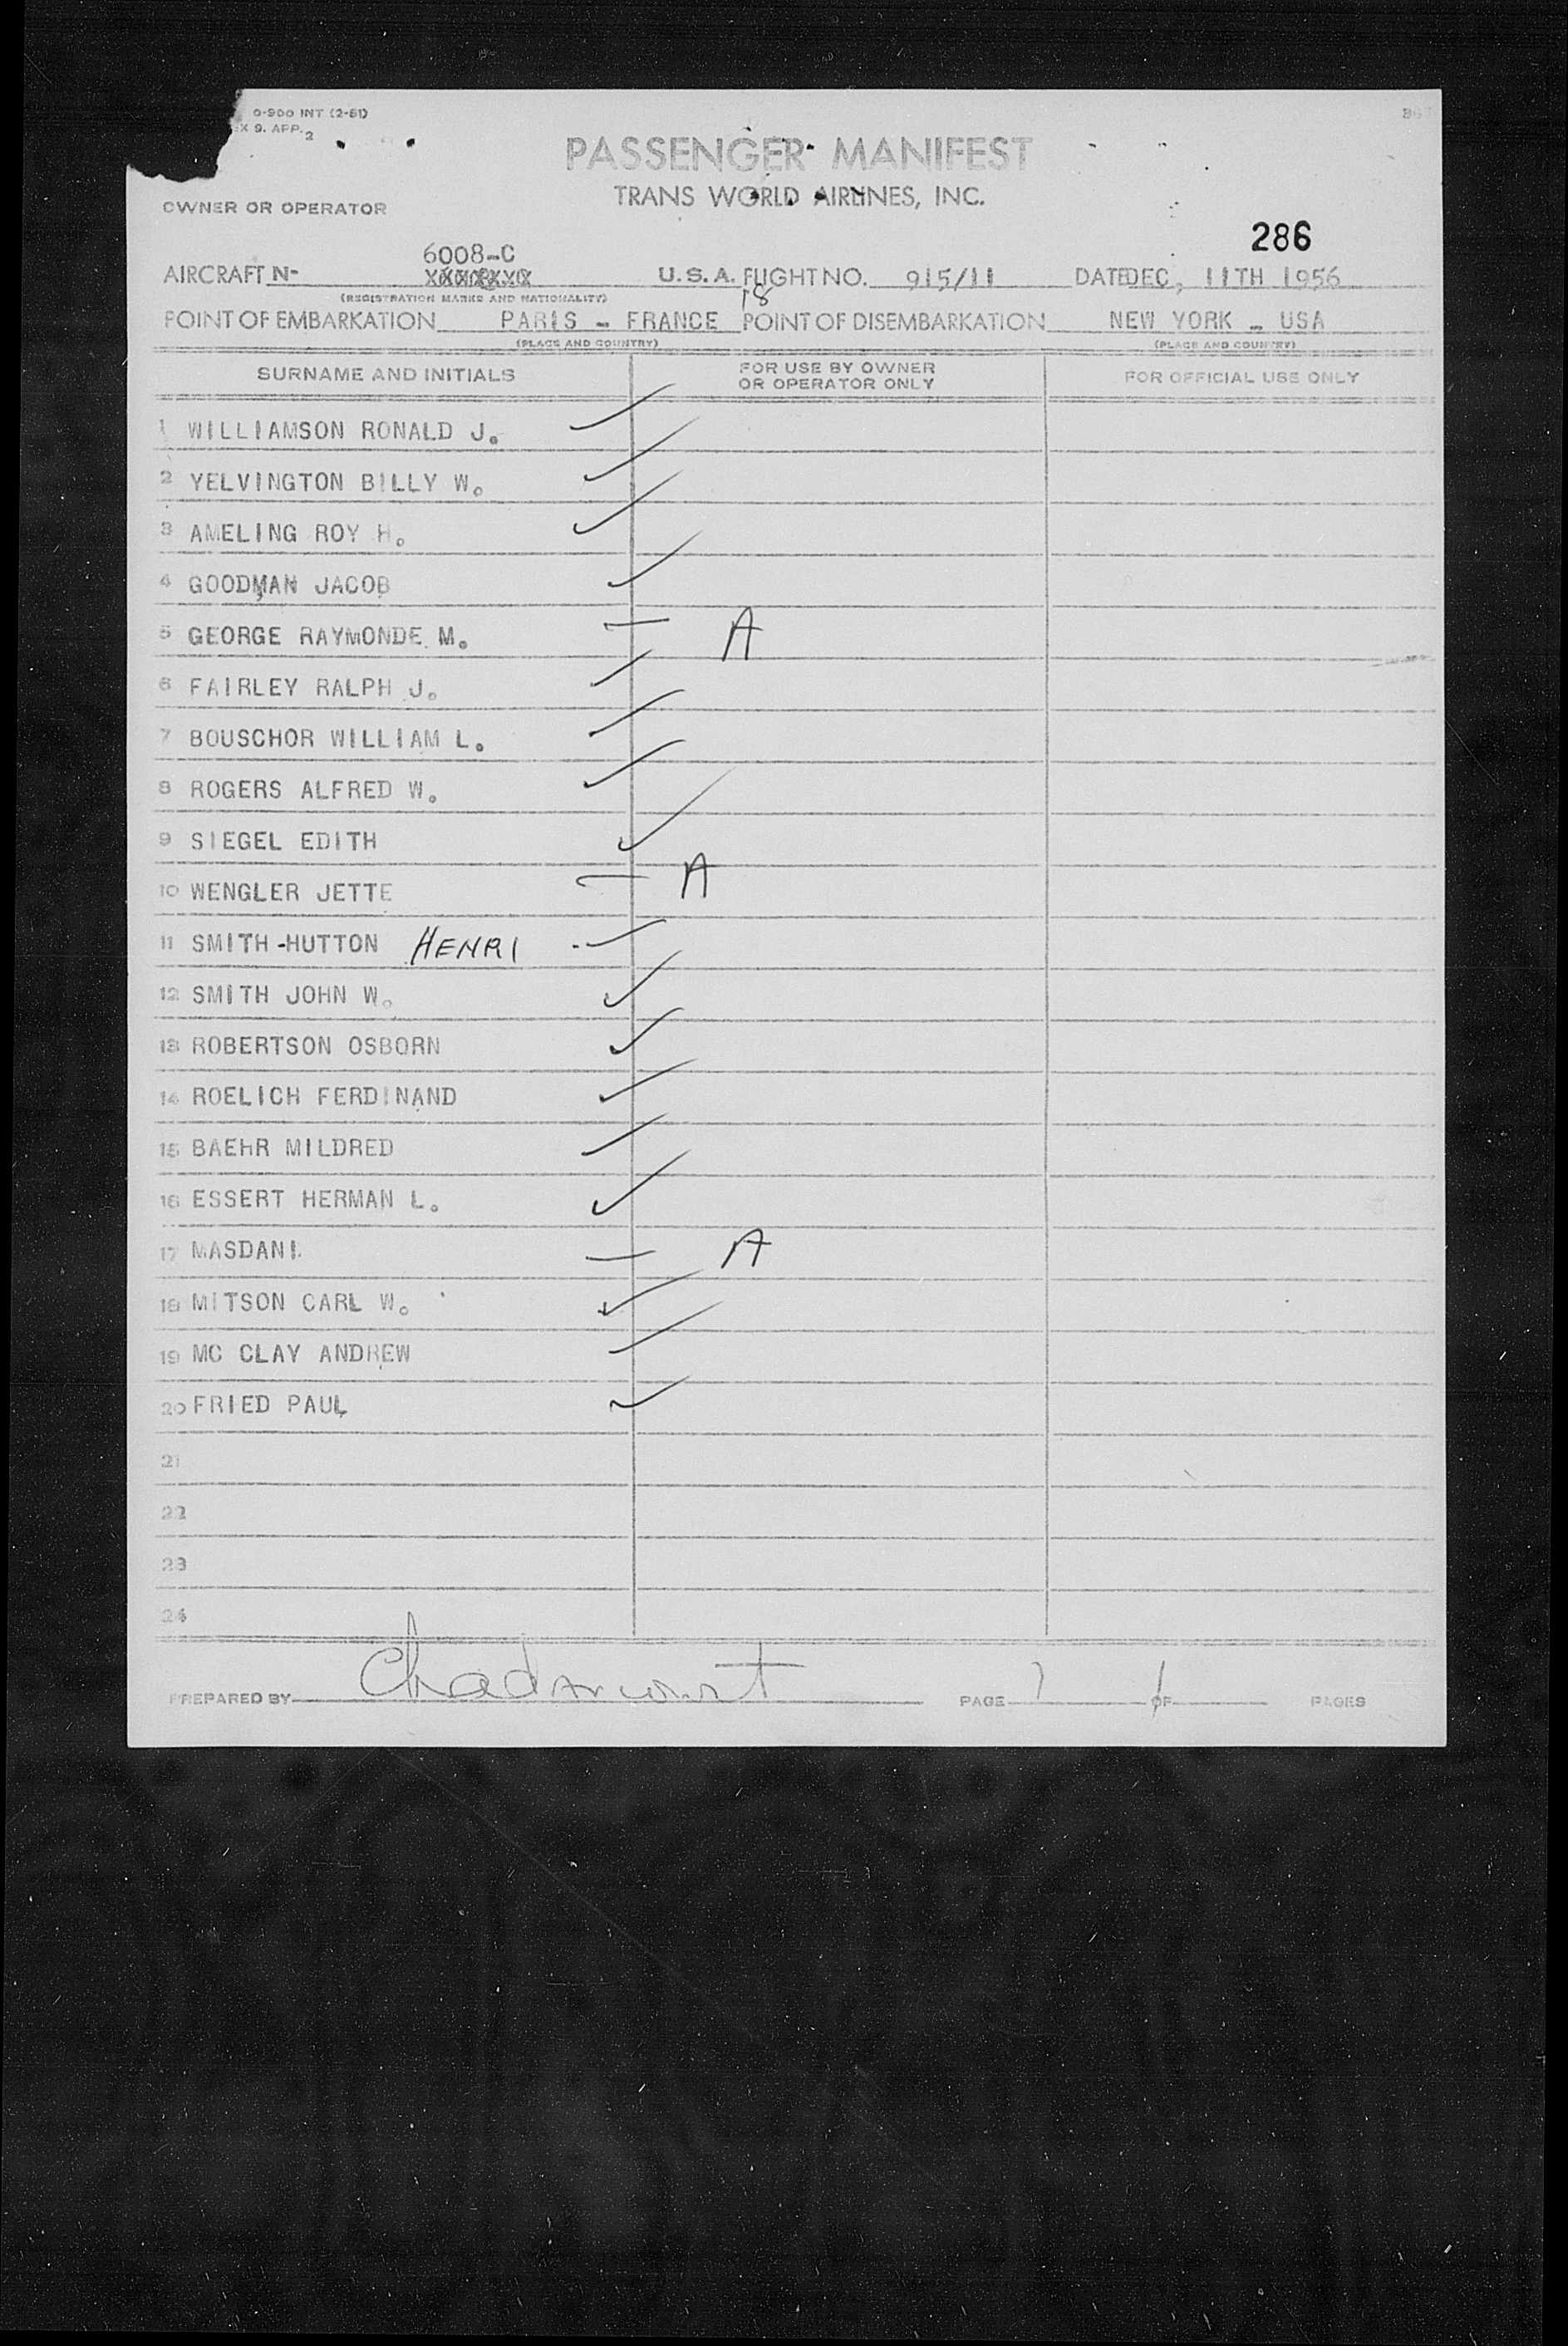 0-900 INT (2-51)
X 9. APP. 2
PASSENGER MANIFEST
TRANS WORLD AIRLINES, INC.
OWNER OR OPERATOR
286
6008-C
AIRCRAFT N- U.S.A. FLIGHT NO. 915/11 DATE DEC, 11TH 1956
(REGISTRATION MARKS AND NATIONALITY)
18
POINT OF EMBARKATION PARIS - FRANCE POINT OF DISEMBARKATION NEW YORK - USA
(PLACE AND COUNTRY) (PLACE AND COUNTRY)
SURNAME AND INITIALS FOR USE BY OWNER OR OPERATOR ONLY FOR OFFICIAL USE ONLY
1 WILLIAMSON RONALD J.
2 YELVINGTON BILLY W.
3 AMELING ROY H.
4 GOODMAN JACOB
5 GEORGE RAYMONDE M. A
6 FAIRLEY RALPH J.
7 BOUSCHOR WILLIAM L.
8 ROGERS ALFRED W.
9 SIEGEL EDITH
10 WENGLER JETTE A
11 SMITH-HUTTON HENRI
12 SMITH JOHN W.
13 ROBERTSON OSBORN
14 ROELICH FERDINAND
15 BAEHR MILDRED
16 ESSERT HERMAN L.
17 MASDANI. A
18 MITSON CARL W.
19 MC CLAY ANDREW
20 FRIED PAUL
21
22
23
24
PREPARED BY PAGE 1 OF PAGES